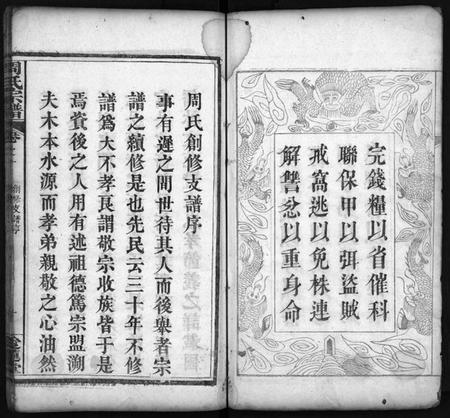 完錢糧以省催科
聯保甲以弭盜賊
戒窩逃以免株連
解讐忿以重身命
周氏創修支譜序
事有遲之間世待其人而後舉者宗
譜之續修是也先民云三十年不修
譜爲大不孝良謂敬宗收族皆于是
焉賁後之人用有述祖德篤宗盟溯
夫木本水源而孝弟親敬之心油然
周氏宗譜
卷
創修支譜序